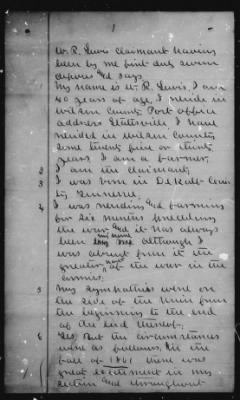 1
W. R. Lewis claimant having
been by me first duly sworn
deposes and says
1 My name is W. R. Lewis, I am
40 years of age, I reside in
Wilson County Post office
address Statesville I have
resided in Wilson County
some twenty five or thirty
years. I am a farmer.
2 I am the claimant,
3 I was born in DeKalb Coun
ty Tennessee
4 I was residing and farming
for six months preceding
the war and it has always
been my home although I
was absent from it the
greater part of the war in the
armies.
5 My sympathies were on
the side of the Union from
the beginning to the end
of the end thereof.
6 Yes, But the circumstances
were as follows, In the
fall of 1861 there was
great excitement in my
section and throughout